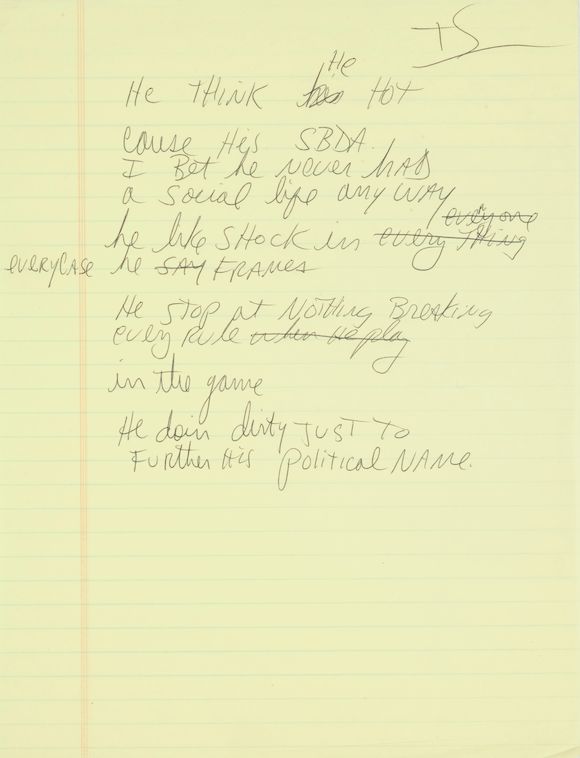 TS
He
He THINK his HOT
cause His SBDA
I Bet he never HAD
a social life anyWAY
everyone
he like SHOCK in every THing
everyCASE he SAY FRAMES
He STOP at NOTHing BReaking
every Rule when He play
in the game
He doin dirty JUST To
FurtHer His Political NAMe.